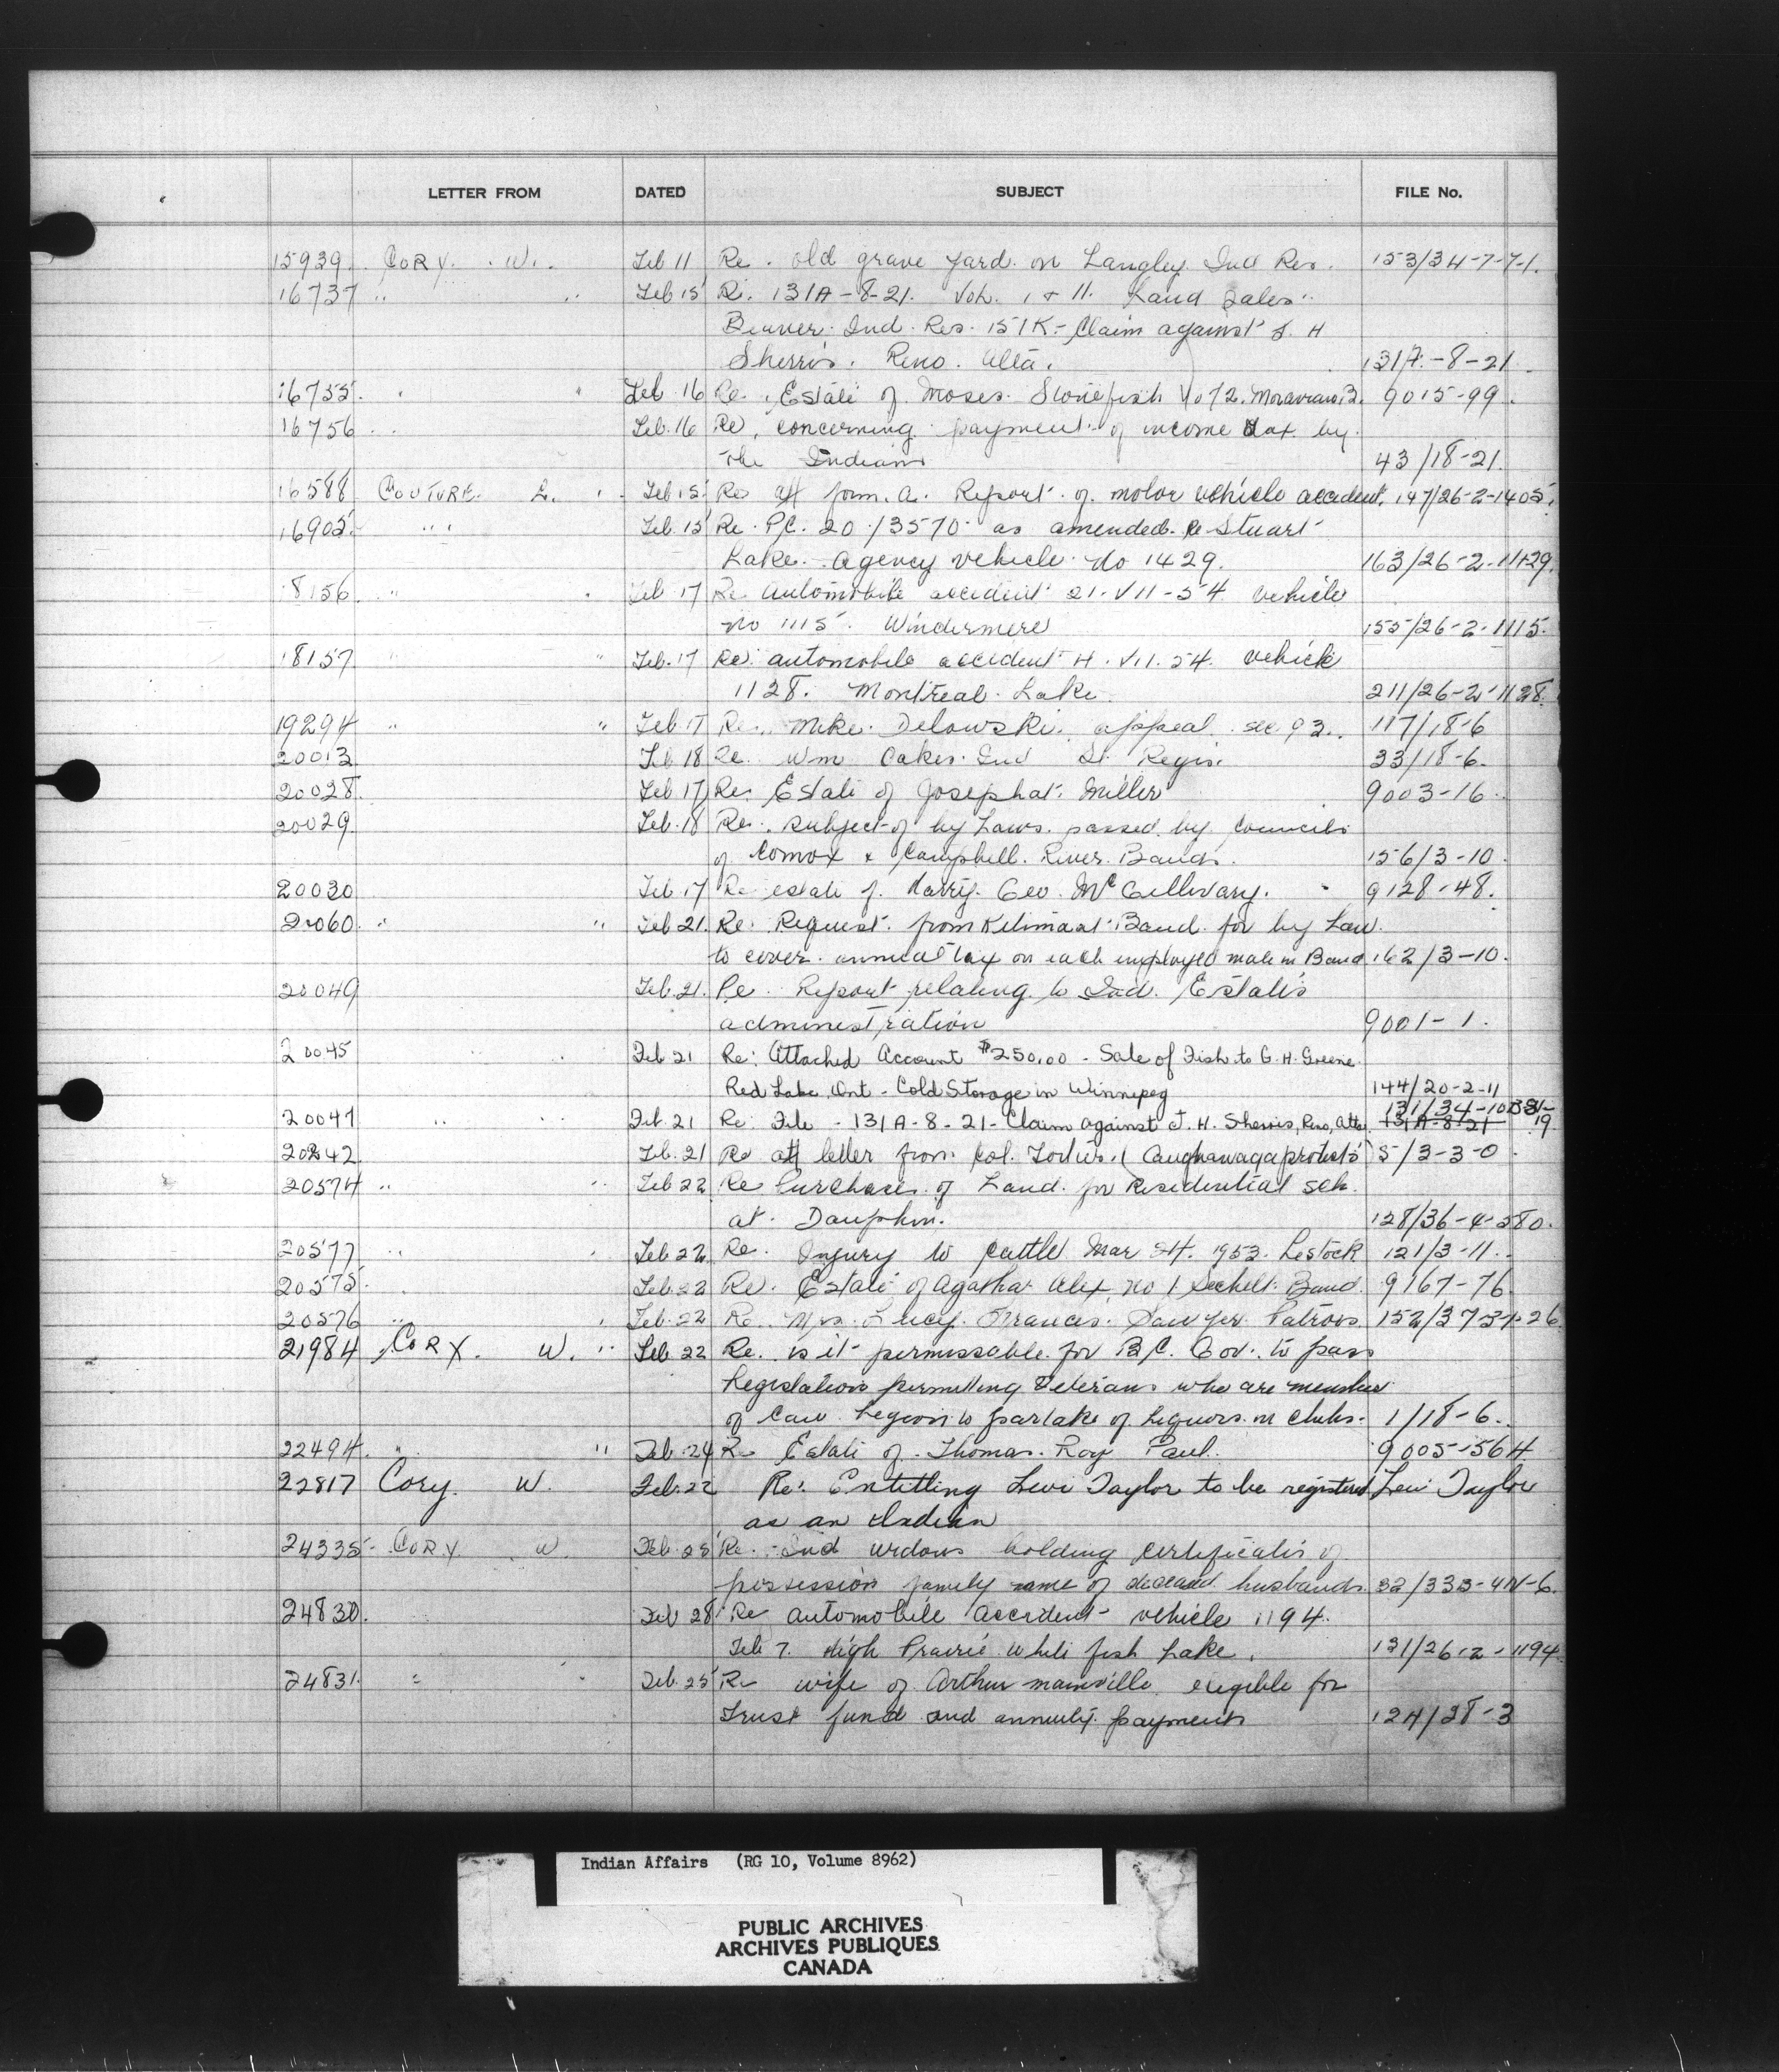 LETTER FROM DATED SUBJECT FILE No.
15939. CORY. W. Feb 11 Re. old grave yard on Langley Ind Res. 153/34-7-7-1.
16737 " " Feb 15 Re. 131A-8-21. Vol. 1 + 11. Land Sales.
Beaver Ind. Res. 151K - Claim against J. H
Sherris. Reno. Alta. -8-21
16755. " " Feb 16 Re. Estate of Moses Stonefish No 72. Moravian B. 9015-99.
16756 " Feb. 16 Re. concerning payment of income tax by
the Indians 43/18-21.
16588 COUTURE. L. Feb 15 Re att form. A. Report of motor vehicle accident. 147/26-2-1405.
16905. " Feb. 15 Re. P.C. 20/3570 as amended. Re Stuart
Lake. Agency vehicle No 1429. 163/26-2-1429.
18156 " Feb 17 Re automobile accident 21-VII-54 vehicle
No 1115. Windermere 155/26-2-1115.
18157 " " Feb. 17 Re: automobile accident 4. VII. 54. vehicle
1128. Montreal Lake 211/26-2-1128.
19294 " " Feb. 17 Re. Mike Delowski. appeal sec. 93. 117/18-6
20013 Feb 18 Re. Wm Oakes. Ind St. Regis. 33/18-6.
20028. Feb 17 Re. Estate of Josephat Miller 9003-16
20029. Feb. 18 Re. subject of by Laws. passed by Councils
of Comox & Campbell River Bands. 156/3-10.
20030 Feb. 17 Re estate of Harry Geo. McGillivary. 9128-48.
20060. " " Feb 21. Re: Request from Kitimaat Band for by Law.
to cover annual tax on each employed male in Band 162/3-10.
20049 Feb. 21. Re. Report relating to Ind. Estates
administration 9001-1.
20045 Feb 21 Re: Attached Account $250.00 - Sale of Fish to G. H. Greene.
Red Lake, Ont - Cold Storage in Winnipeg 144/20-2-11
131/34-10
20047 " " Feb 21 Re: File - 131A-8-21 - Claim against J. H. Sherris, Reno, Alta. 131A-8-21 19.
20242 Feb. 21 Re att letter from Col. Fortier. (Caughnawaga protests) 5/3-3-0.
20574 " " Feb 22 Re Purchase of Land for Residential sch.
at Dauphin. 128/36-4-580.
20577 " " Feb 22 Re. Injury to cattle Mar 24. 1953. Lestock 121/3-11.
20575. " Feb. 22 Re. Estate of Agatha Alex, No 1 Sechelt Band. 9167-76
20576 " Feb. 22 Re. Mrs. Lucy Frances Sawyer 152/37
21984 CORY. W. Feb 22 Re. is it permissable for B.C. Gov. to pass
Legislation permitting Veterans who are members
of Can Legion to partake of Liquors in clubs. 1/18-6.
22494. " " Feb 24 Re Estate of Thomas Roy Paul. 9005-564
22817 Cory. W. Feb. 22 Re: Entitling Levi Taylor to be registered Levi Taylor
as an Indian
24335 - CORY. W. Feb. 25 Re. Ind widows holding certificates of
possession family name of deceased husbands. 32/333-
24830. Feb 28 Re automobile accident vehicle 1194.
Feb 7. High Prairie White fish Lake. 131/26-2-1194.
24831. " " Feb. 25 Re wife of Arthur Mainville eligible for
Trust fund and annuity payments 124/28-3
Indian Affairs (RG 10, Volume 8962)
PUBLIC ARCHIVES
ARCHIVES PUBLIQUES
CANADA